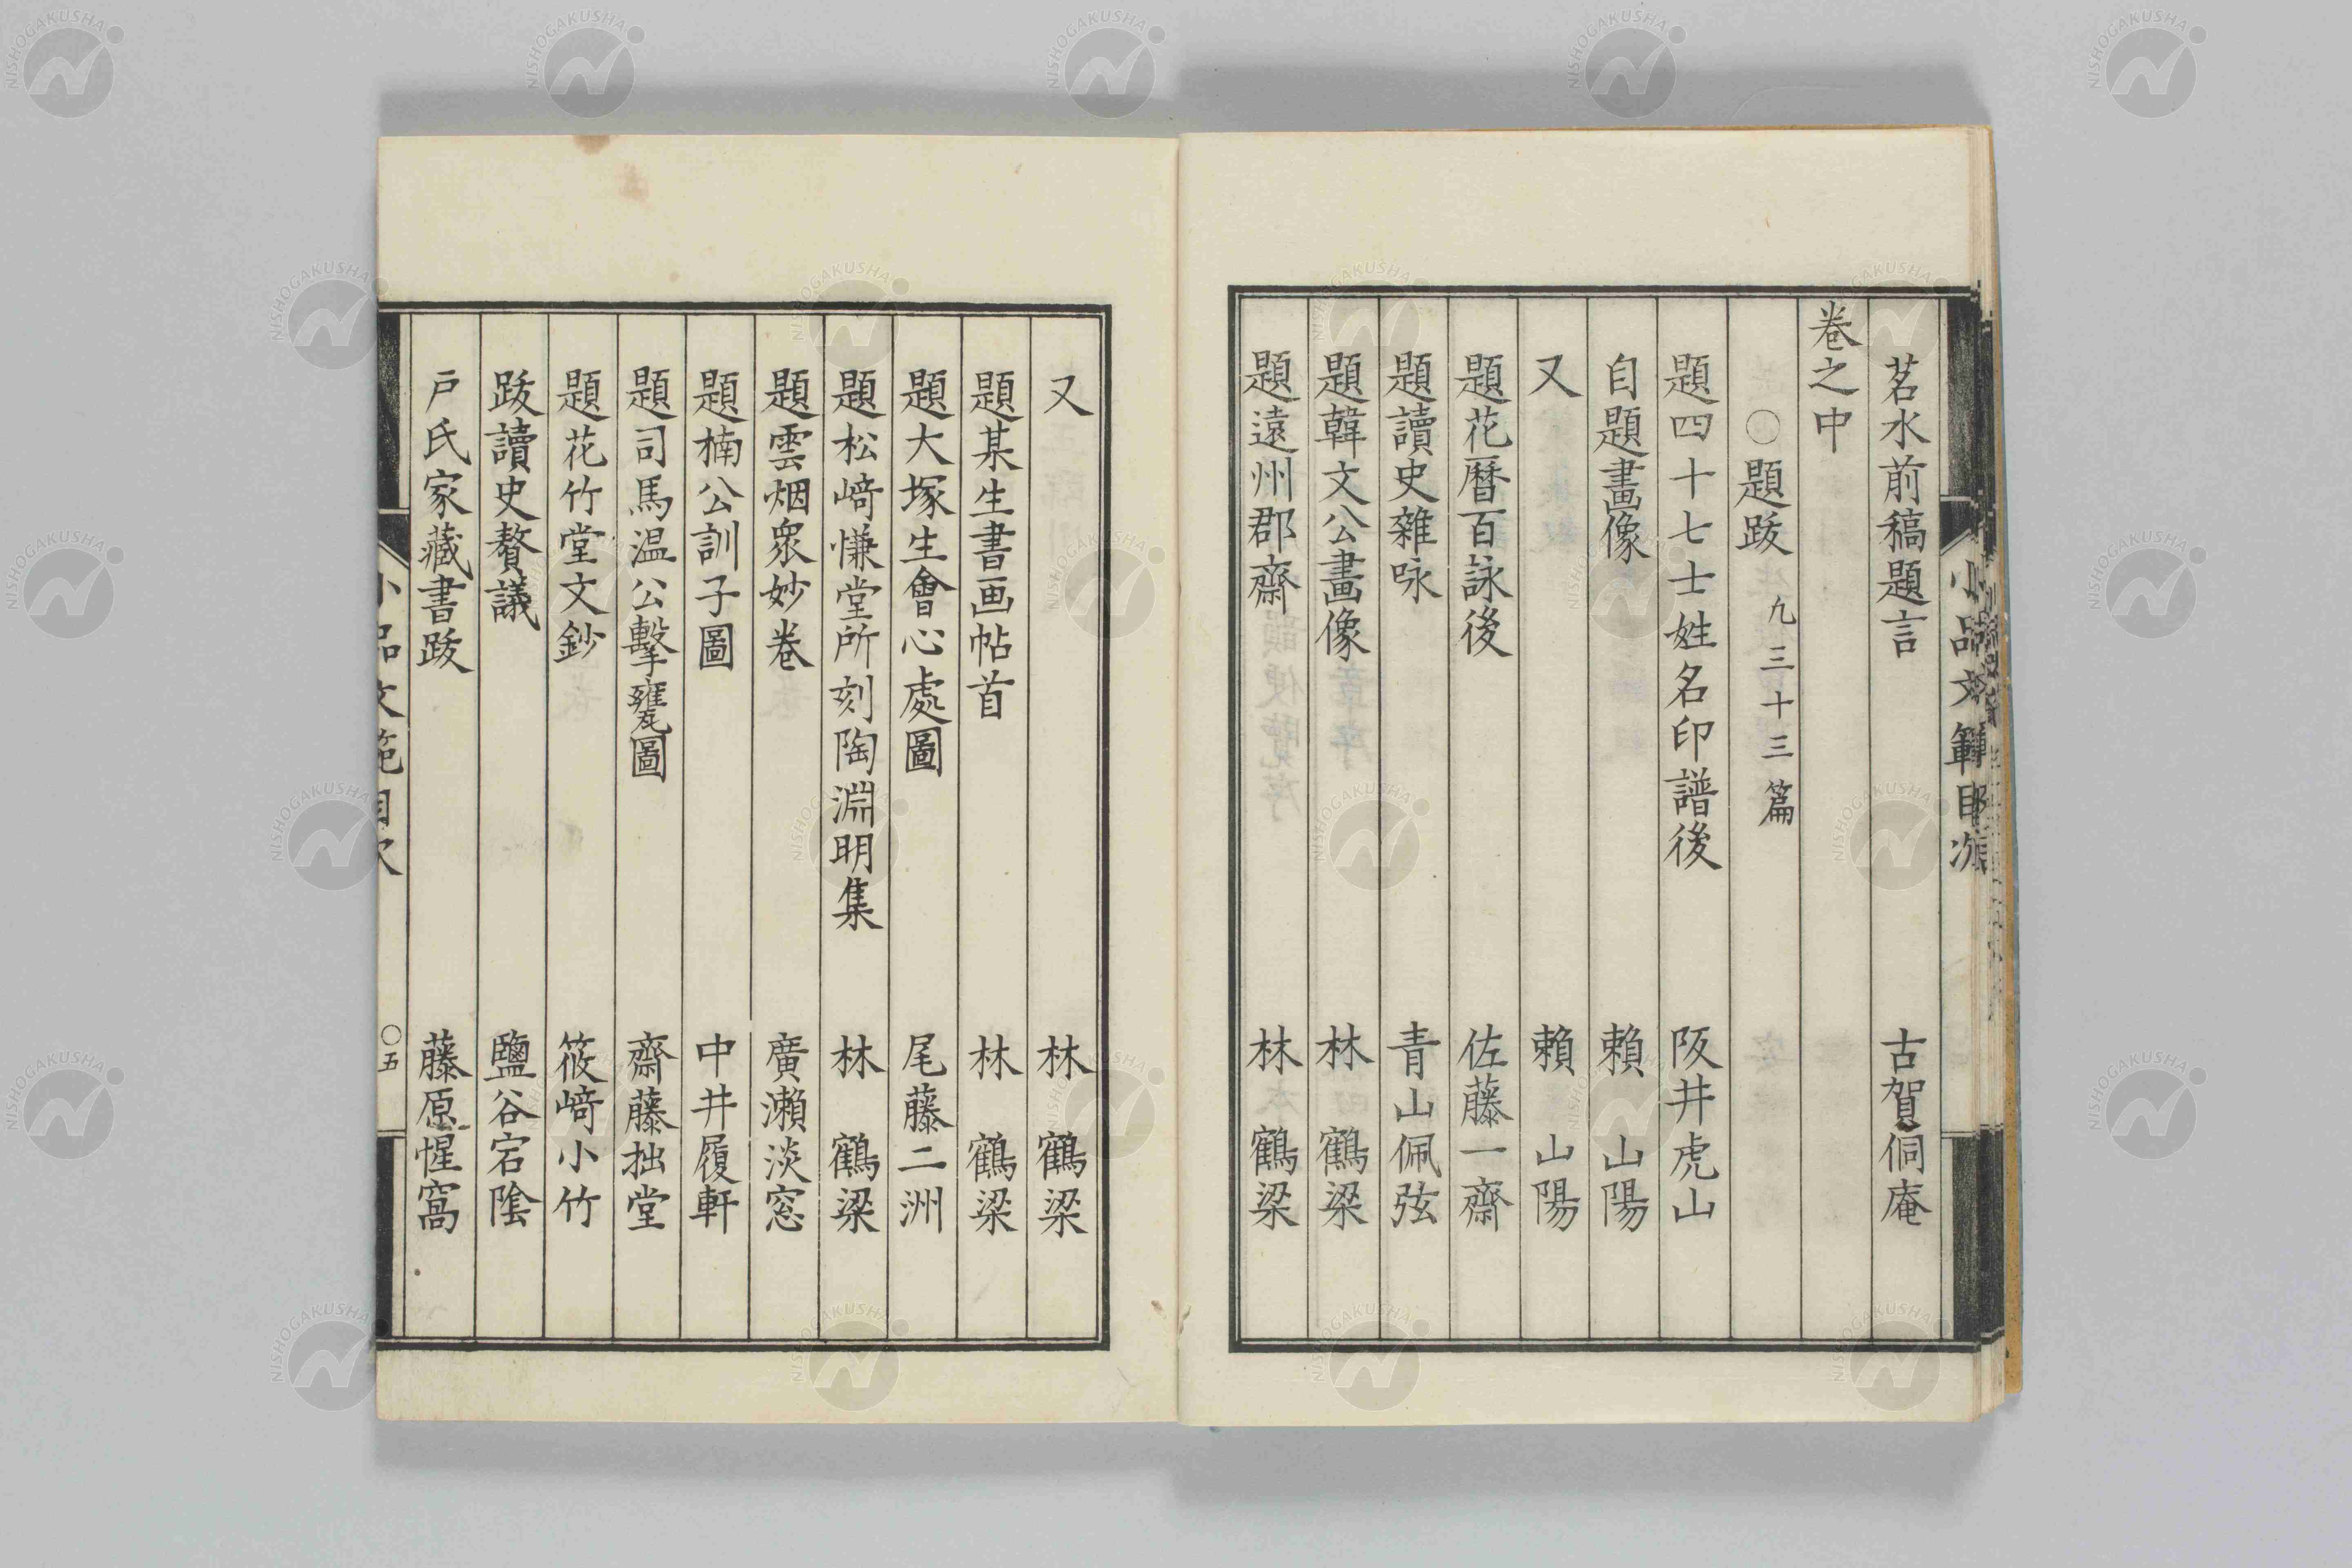 茗水前稿題言　古賀侗庵
卷之中
○題跋　九三十三篇
題四十七士姓名印譜後　阪井虎山
自題畫像　賴山陽
又　賴山陽
題花曆百詠後　佐藤一齋
題讀史雜咏　青山佩弦
題韓文公畫像　林鶴梁
題遠州郡齋　林鶴梁
又　林鶴梁
題某生書画帖首　林鶴梁
題大塚生會心處圖　尾藤二洲
題松﨑慊堂所刻陶淵明集　林鶴梁
題雲烟衆妙卷　廣瀨淡窓
題楠公訓子圖　中井履軒
題司馬温公擊甕圖　齋藤拙堂
題花竹堂文鈔　筱﨑小竹
跋讀史贅議　鹽谷宕陰
戸氏家藏書跋　藤原惺窩
小品文範目次
○五
NISHOGAKUSHA